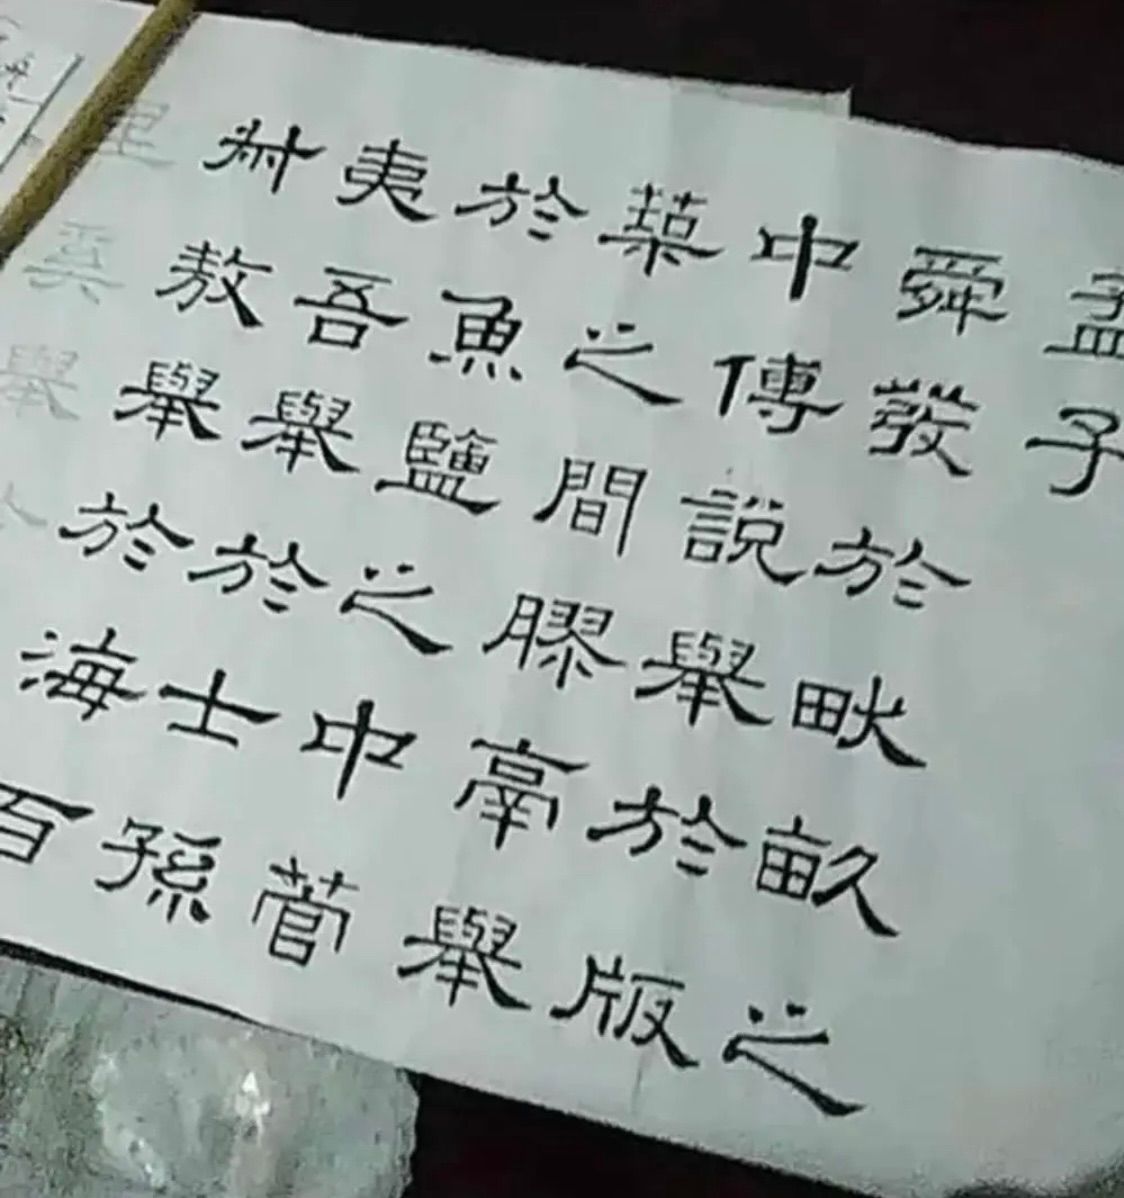 孟子
舜發於畎畝之
中傅說舉於版
築之間膠鬲舉
於魚鹽之中管
夷吾舉於士孫
叔敖舉於海百
里奚舉